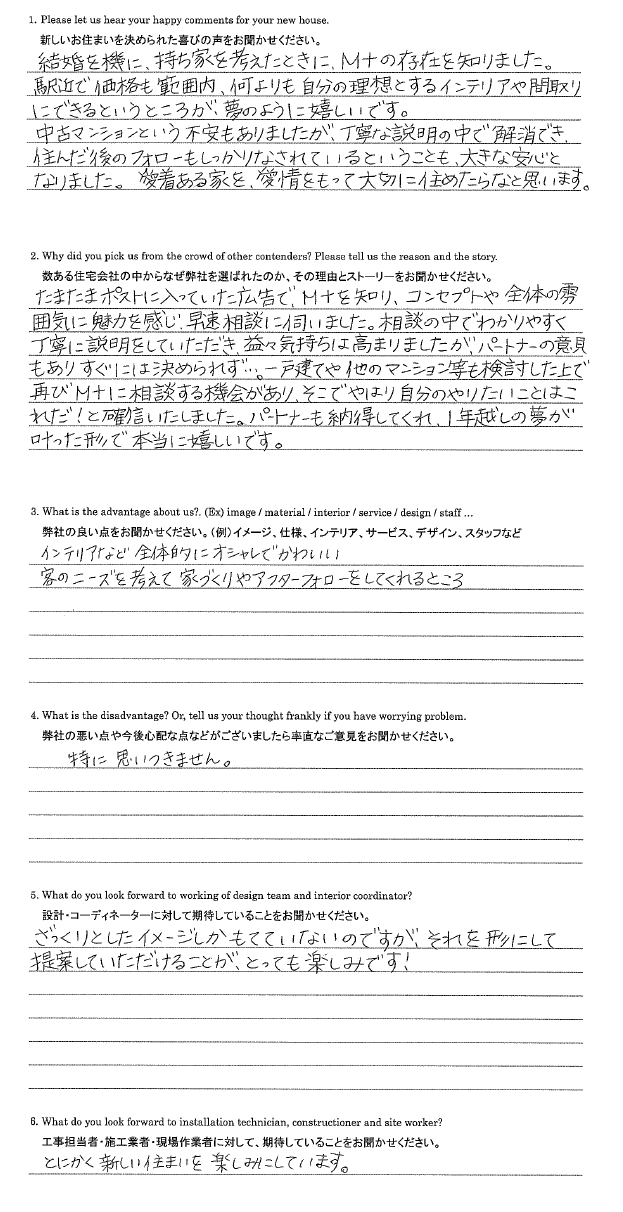 1. Please let us hear your happy comments for your new house.
新しいお住まいを決められた喜びの声をお聞かせください。
結婚を機に、持ち家を考えたときに、M+の存在を知りました。
駅近で価格も範囲内、何よりも自分の理想とするインテリアや間取り
にできるというところが、夢のように嬉しいです。
中古マンションという不安もありましたが、丁寧な説明の中で解消でき、
住んだ後のフォローもしっかりなされているということも、大きな安心と
なりました。愛着ある家を、愛情をもって大切に住めたらなと思います。
2. Why did you pick us from the crowd of other contenders? Please tell us the reason and the story.
数ある住宅会社の中からなぜ弊社を選ばれたのか、その理由とストーリーをお聞かせください。
たまたまポストに入っていた広告で、M+を知り、コンセプトや全体の雰
囲気に魅力を感じ、早速相談に伺いました。相談の中でわかりやすく
丁寧に説明をしていただき、益々気持ちは高まりましたが、パートナーの意見
もありすぐには決められず…。一戸建てや他のマンション等も検討した上で
再びM+に相談する機会があり、そこでやはり自分のやりたいことはこ
れだ!と確信いたしました。パートナーも納得してくれ、1年越しの夢が
叶った形で本当に嬉しいです。
3. What is the advantage about us?. (Ex) image / material / interior / service / design / staff ...
弊社の良い点をお聞かせください。(例)イメージ、仕様、インテリア、サービス、デザイン、スタッフなど
インテリアなど全体的にオシャレでかわいい
客のニーズを考えて家づくりやアフターフォローをしてくれるところ
4. What is the disadvantage? Or, tell us your thought frankly if you have worrying problem.
弊社の悪い点や今後心配な点などがございましたら率直なご意見をお聞かせください。
特に思いつきません。
5. What do you look forward to working of design team and interior coordinator?
設計・コーディネーターに対して期待していることをお聞かせください。
ざっくりとしたイメージしかもてていないのですが、それを形にして
提案していただけることが、とっても楽しみです!
6. What do you look forward to installation technician, constructioner and site worker?
工事担当者・施工業者・現場作業者に対して、期待していることをお聞かせください。
とにかく新しい住まいを楽しみにしています。